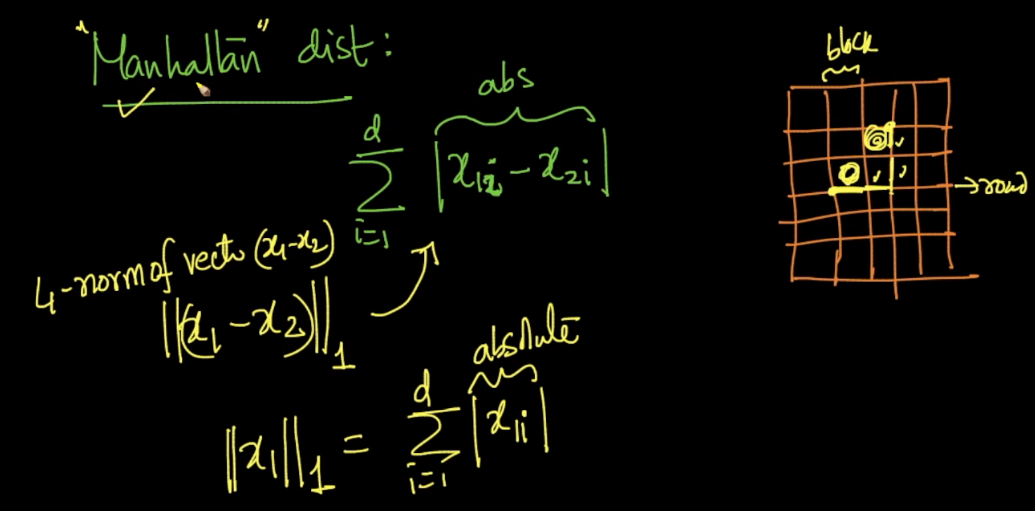 "Manhattan" dist:
abs
d
∑ |x₁ᵢ - x₂ᵢ|
i=1
L₁-norm of vector (x₁-x₂)
||(x₁-x₂)||₁
absolute
d
||x₁||₁ = ∑ |x₁ᵢ|
i=1
block
→road